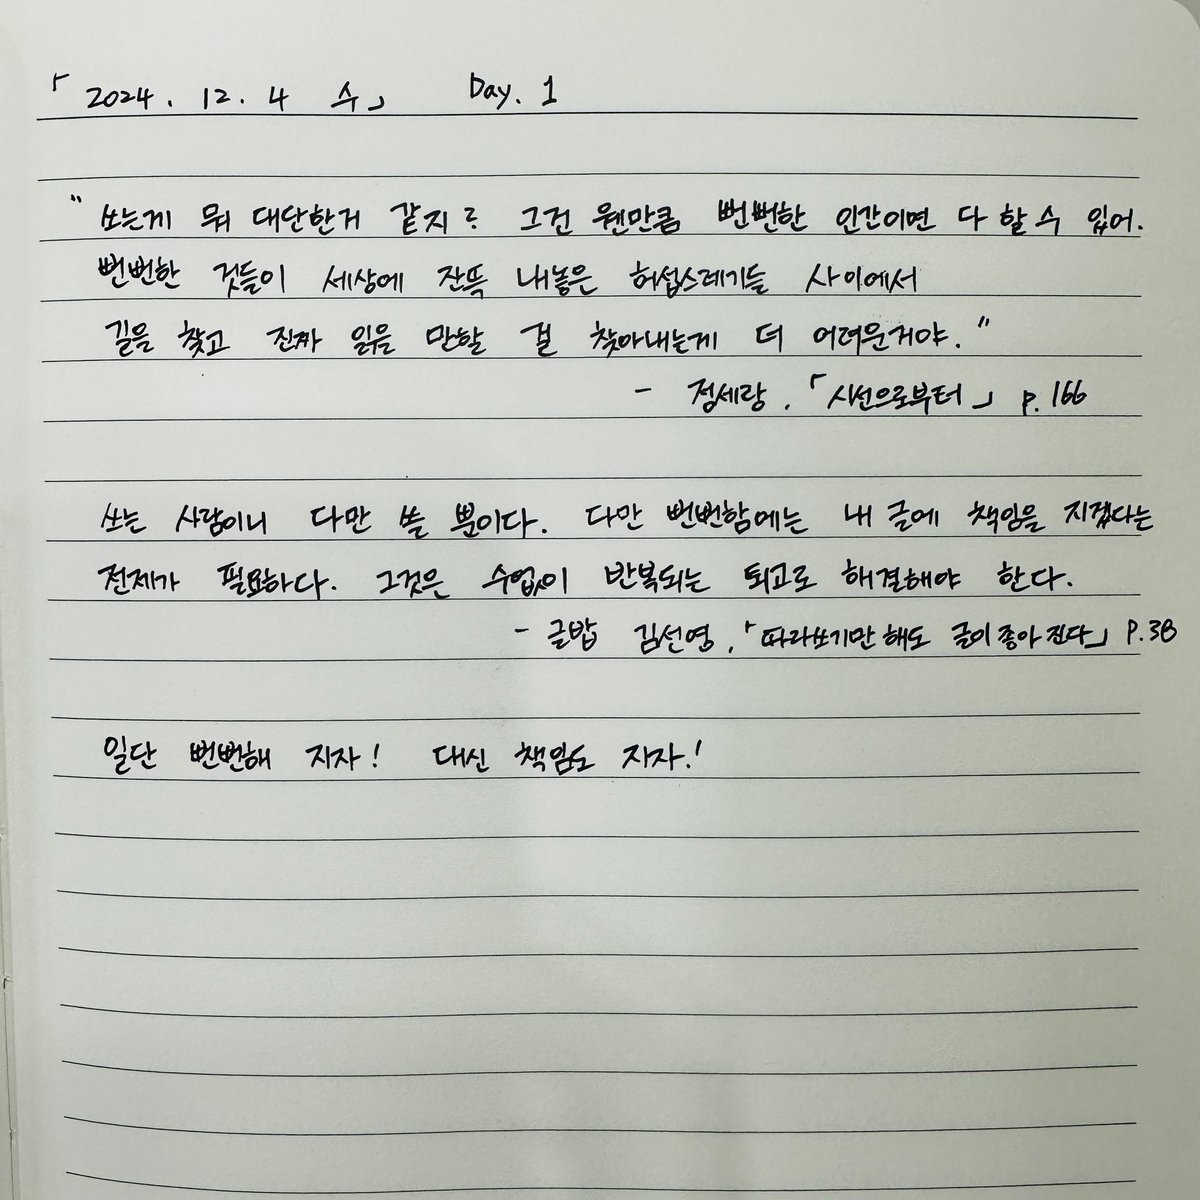 「2024. 12. 4 수」 Day. 1
" 쓰는게 뭐 대단한거 같지? 그건 웬만큼 뻔뻔한 인간이면 다 할 수 있어.
뻔뻔한 것들이 세상에 잔뜩 내놓은 허섭스레기들 사이에서
길을 찾고 진짜 읽을 만할 걸 찾아내는게 더 어려운거야."
- 정세랑. 「시선으로부터」 p. 166
쓰는 사람이니 다만 쓸 뿐이다. 다만 뻔뻔함에는 내 글에 책임을 지겠다는
전제가 필요하다. 그것은 수없이 반복되는 퇴고로 해결해야 한다.
- 글밥 김선영. 「따라쓰기만 해도 글이 좋아진다」 P. 38
일단 뻔뻔해 지자! 대신 책임도 지자!